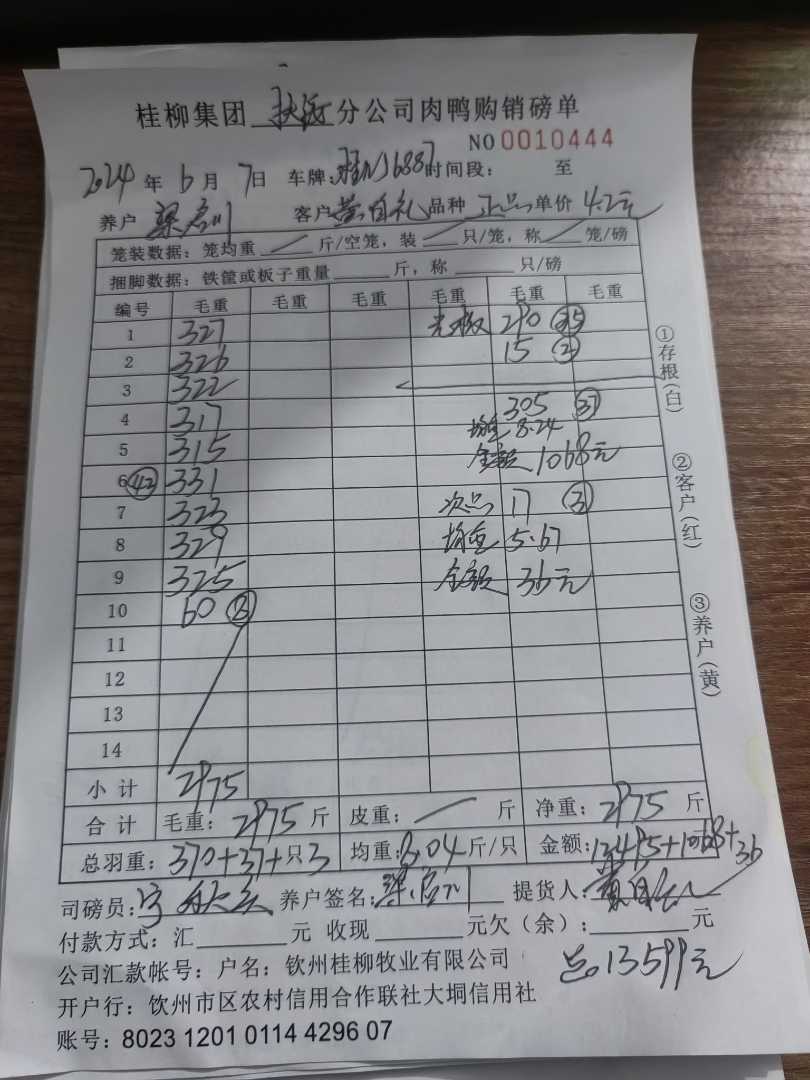 桂柳集团 分公司肉鸭购销磅单
NO 0010444
2024 年 6 月 7 日 车牌: 时间段: 至
养户 客户 品种 正品 单价 4.2元
笼装数据: 笼均重 / 斤/空笼, 装 / 只/笼, 称 / 笼/磅
捆脚数据: 铁筐或板子重量 斤, 称 只/磅
编号 毛重 毛重 毛重 毛重 毛重 毛重
1 327 290 35
2 326 15 ②
3 322
4 317 305 37
均重 8.24
5 315 金额 1068元
6 42 331
7 323 次品 17 ③
8 329 均重 5.67
9 325 金额 36元
10 60 ⑧
11
12
13
14
小计 2975
合计 毛重: 2975 斤 皮重: / 斤 净重: 2975 斤
总羽重: 370+37+只3 均重: 8.04 斤/只 金额: 12495+1068+36
司磅员: 养户签名: 提货人:
付款方式: 汇 元 收现 元欠(余): 元
公司汇款帐号: 户名: 钦州桂柳牧业有限公司 总13599元
开户行: 饮州市区农村信用合作联社大垌信用社
账号: 8023 1201 0114 4296 07
①存根(白)
②客户(红)
③养户(黄)